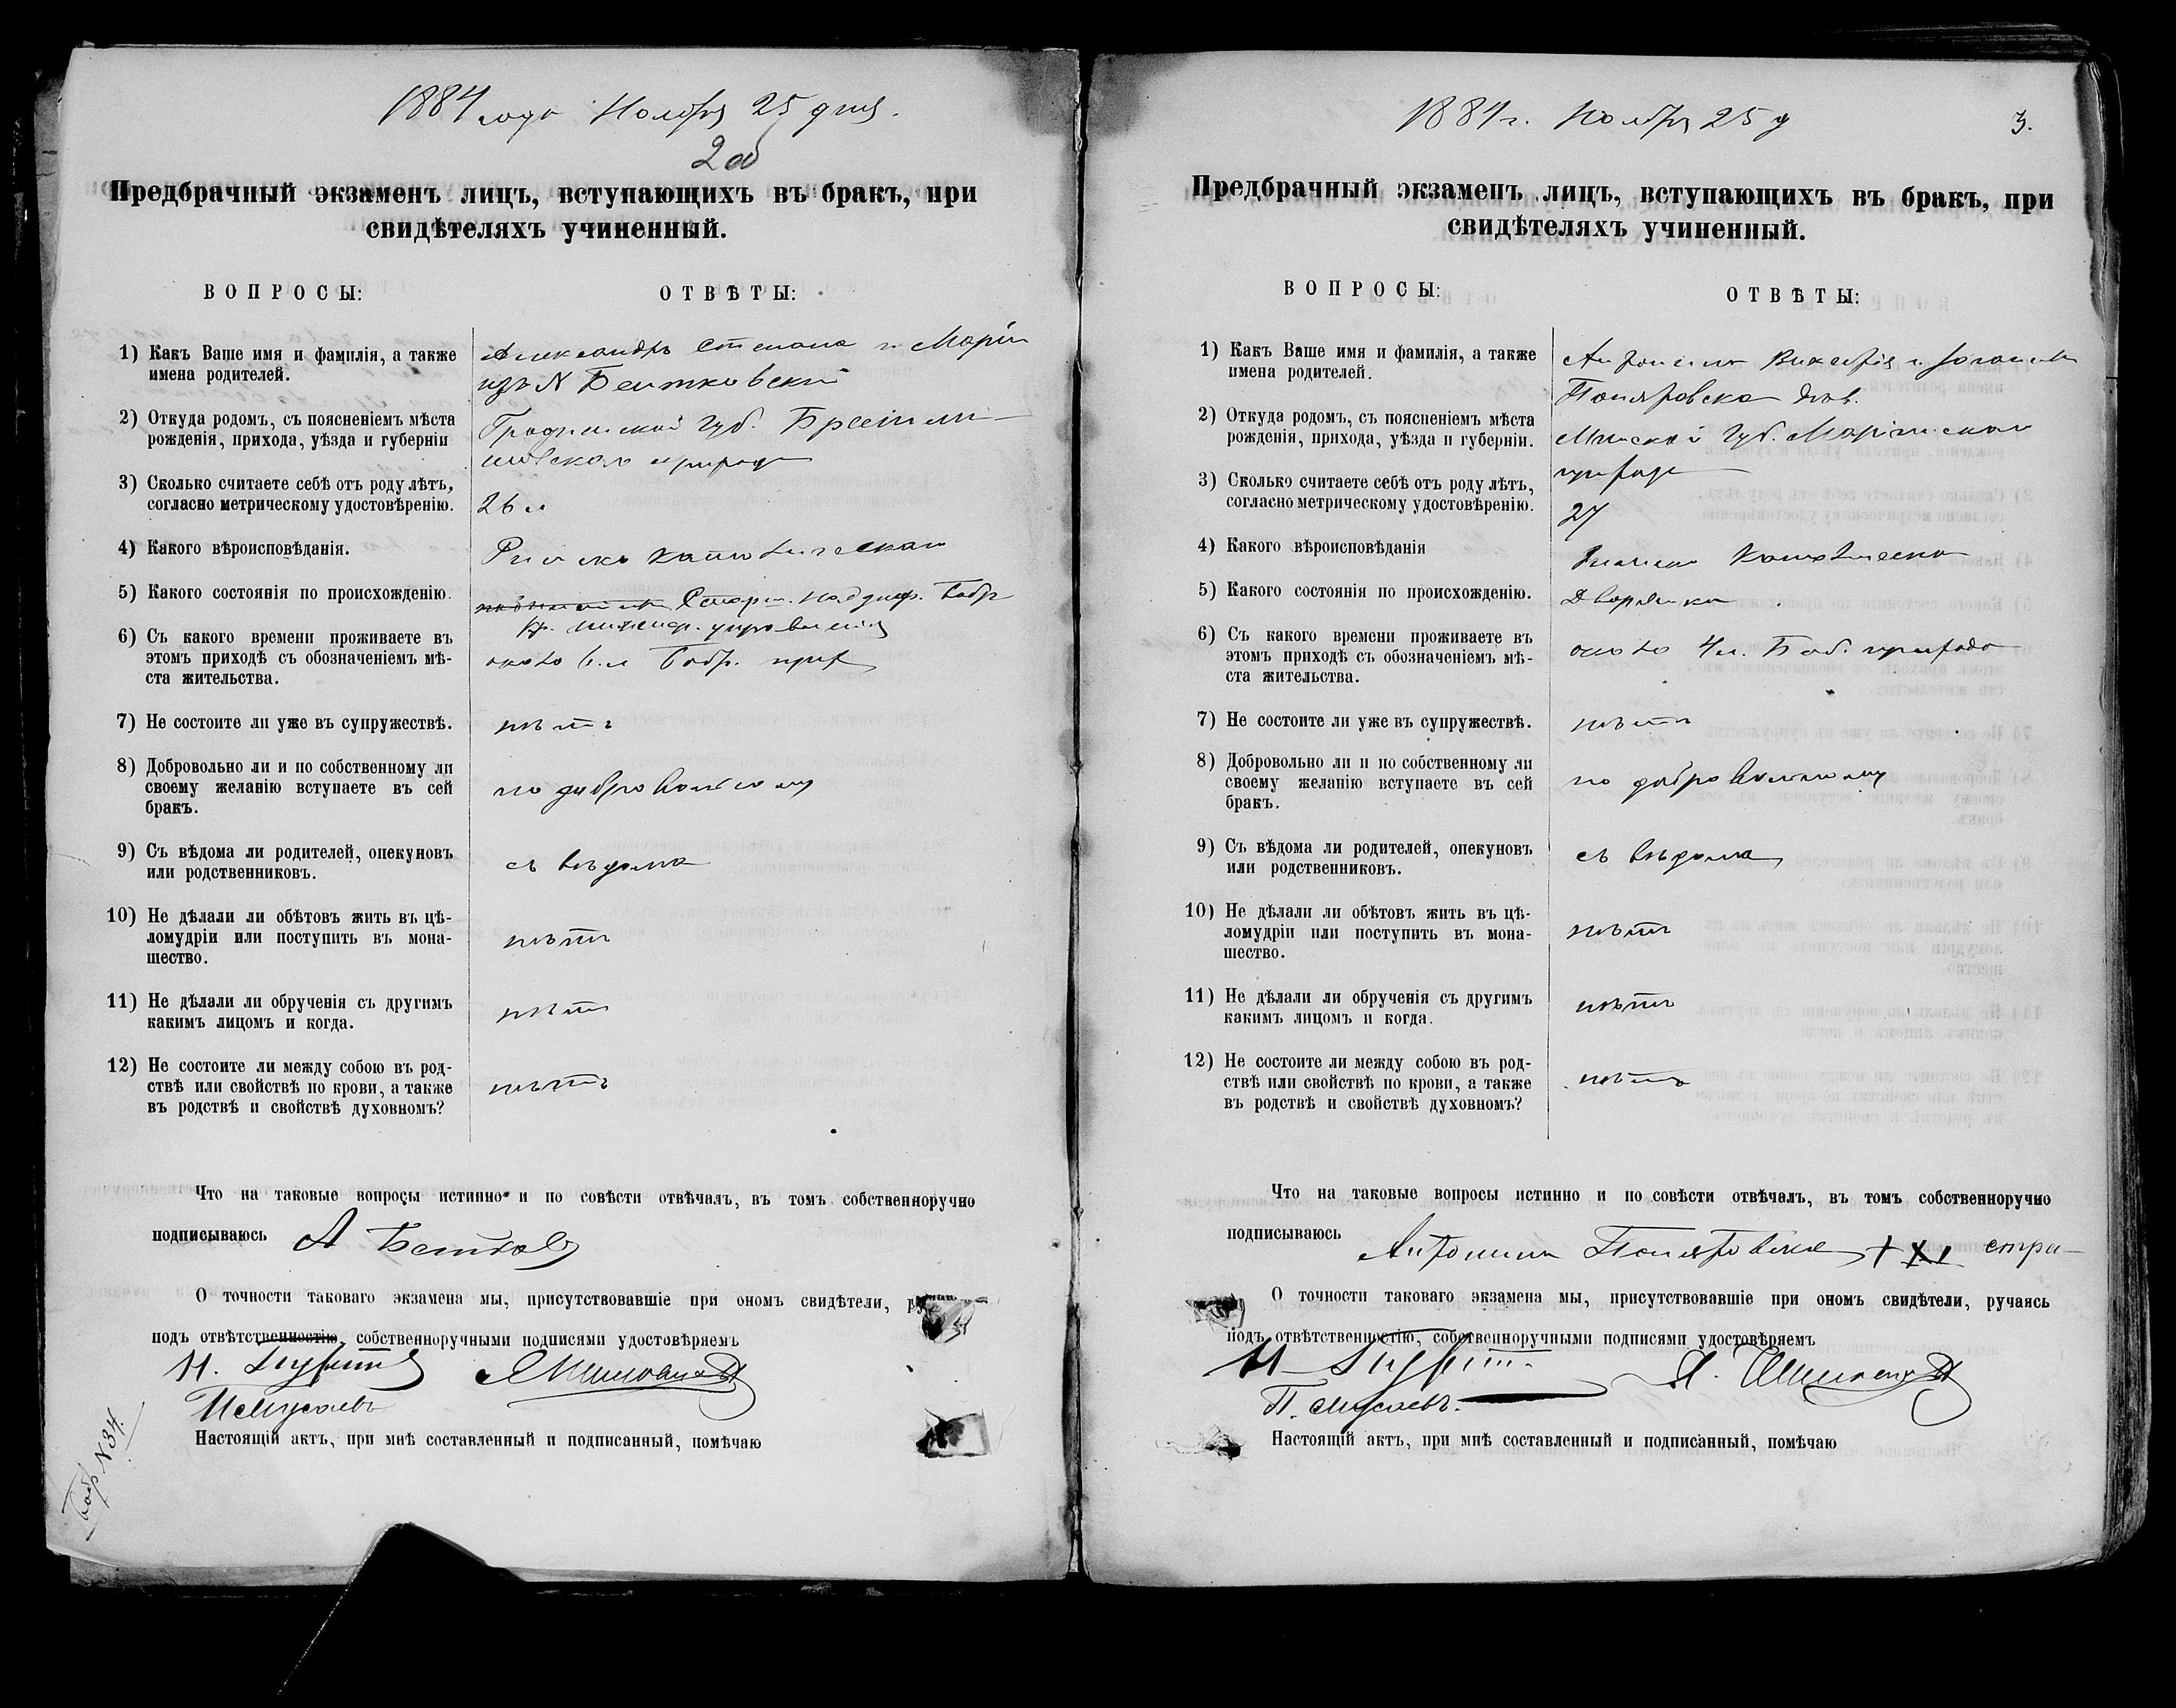 1884 года Ноября 25 дня.
2об
Предбрачный экзаменъ лицъ, вступающихъ въ бракъ, при
свидѣтеляхъ учиненный.
ВОПРОСЫ:
ОТВѢТЫ:
1) Какъ Ваше имя и фамилія, а также
имена родителей.
Александръ Степана и Маріи
изъ N Бентковскій
2) Откуда родомъ, съ поясненіемъ мѣста
рожденія, прихода, уѣзда и губерніи
Гродненской Губ.
прихода
3) Сколько считаете себѣ отъ роду лѣтъ,
согласно метрическому удостовѣренію.
26 л
4) Какого вѣроисповѣданія.
Римско Католическаго
5) Какого состоянія по происхожденію.
Старш. Надзир. Бобр
кр. инженер. управленія
6) Съ какого времени проживаете въ
этомъ приходѣ съ обозначеніемъ мѣ-
ста жительства.
около 6 л Бобр. прих
7) Не состоите ли уже въ супружествѣ.
нѣтъ
8) Добровольно ли и по собственному ли
своему желанію вступаете въ сей
бракъ.
по добровольному
9) Съ вѣдома ли родителей, опекуновъ
или родственниковъ.
съ вѣдома
10) Не дѣлали ли обѣтовъ жить въ цѣ-
ломудріи или поступить въ мона-
шество.
нѣтъ
11) Не дѣлали ли обрученія съ другимъ
какимъ лицомъ и когда.
нѣтъ
12) Не состоите ли между собою въ род-
ствѣ или свойствѣ по крови, а также
въ родствѣ и свойствѣ духовномъ?
нѣтъ
Что на таковые вопросы истинно и по совѣсти отвѣчалъ, въ томъ собственноручно
подписываюсь А Бентков
О точности таковаго экзамена мы, присутствовавшіе при ономъ свидѣтели,
подъ отвѣтственностію, собственноручными подписями удостовѣряемъ
Настоящій актъ, при мнѣ составленный и подписанный, помѣчаю
Бобр N 34.
1884 г. Ноября 25 д
3.
Предбрачный экзаменъ лицъ, вступающихъ въ бракъ, при
свидѣтеляхъ учиненный.
ВОПРОСЫ:
ОТВѢТЫ:
1) Какъ Ваше имя и фамилія, а также
имена родителей.
Антонина
дѣв.
2) Откуда родомъ, съ поясненіемъ мѣста
рожденія, прихода, уѣзда и губерніи.
Минской Губ.
прихода
3) Сколько считаете себѣ отъ роду лѣтъ,
согласно метрическому удостовѣренію.
27
4) Какого вѣроисповѣданія
Римско Католическо
5) Какого состоянія по происхожденію.
Дворянка
6) Съ какого времени проживаете въ
этомъ приходѣ съ обозначеніемъ мѣ-
ста жительства.
около 4 л. Боб. прихода
7) Не состоите ли уже въ супружествѣ.
нѣтъ
8) Добровольно ли и по собственному ли
своему желанію вступаете въ сей
бракъ.
по добровольному
9) Съ вѣдома ли родителей, опекуновъ
или родственниковъ.
съ вѣдома
10) Не дѣлали ли обѣтовъ жить въ цѣ-
ломудріи или поступить въ мона-
шество.
нѣтъ
11) Не дѣлали ли обрученія съ другимъ
какимъ лицомъ и когда.
нѣтъ
12) Не состоите ли между собою въ род-
ствѣ или свойствѣ по крови, а также
въ родствѣ и свойствѣ духовномъ?
нѣтъ
Что на таковые вопросы истинно и по совѣсти отвѣчалъ, въ томъ собственноручно
подписываюсь Антонина
О точности таковаго экзамена мы, присутствовавшіе при ономъ свидѣтели, ручаясь
подъ отвѣтственностію, собственноручными подписями удостовѣряемъ
П. Мусаевъ.
Настоящій актъ, при мнѣ составленный и подписанный, помѣчаю